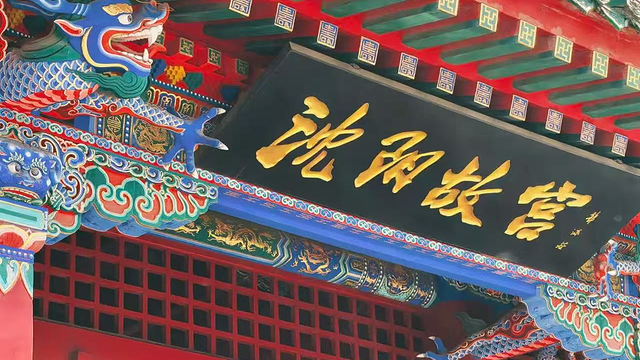 沈阳故宫